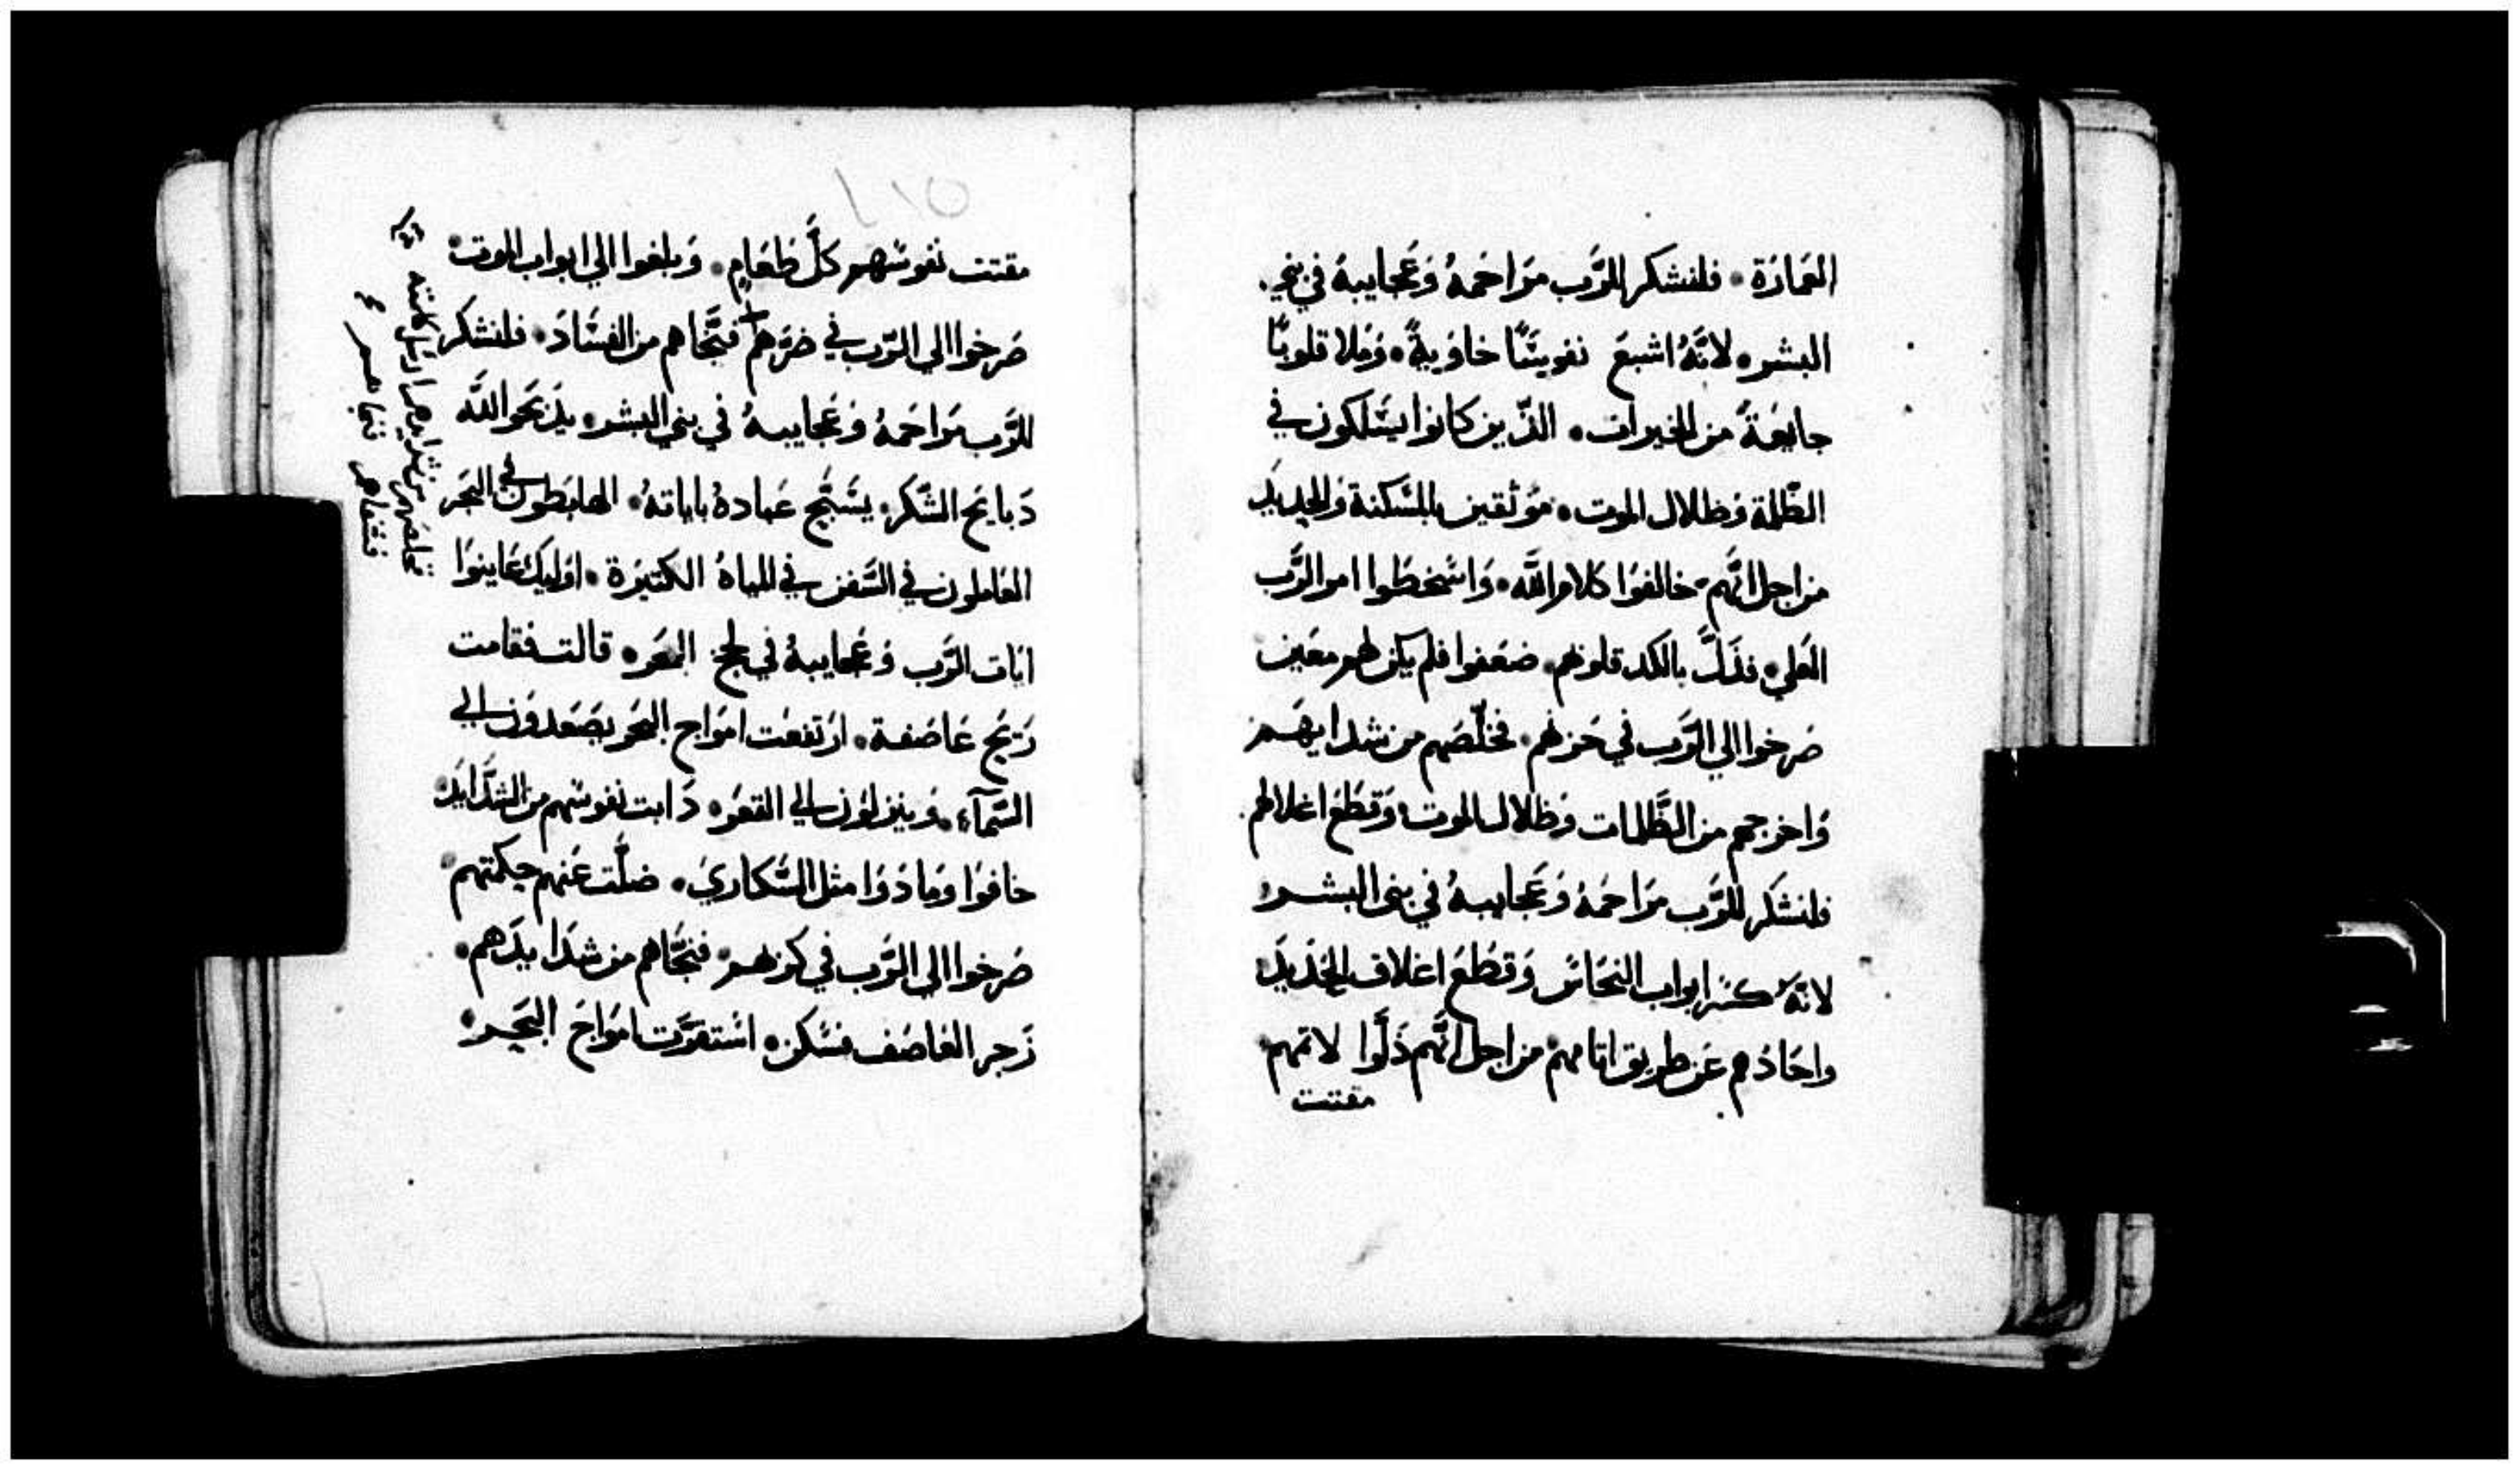 العَمارَة • فلنشكر للرَّب مرَاحمَهُ وَعَجايبهُ في بني.
البشر • لانَّهُ اشبعَ نفوسًا خاوَيةً • وَملا قلوبًا
جايعَةً من الخيرات • الذّين كانوا يسَلكون في
الظّلمة وَظلال الموت • مؤثقين بالمسَكنة وَالحديد
من اجل انَّهم خالفوَا كلام الله • وَاسْخطَوا امر الرَّب
العَلي • فذَلَّ بالكد قلوبهم • ضعَفوا فلم يكن لهم معَين
صَرخوا الي الرَّب في حَزنهم • فخلّصَهم من شدايهم
وَاخرجهم من الظَّلمات وَظلال الموت • وَقطَعَ اغلالهم.
فلنشكَر للرَّب مرَاحمَهُ وَعَجايبهُ في بني البشر •
لانَّهُ كسَر ابواب النحَاسْ وَقطَعَ اغلاق الحَديدَ
واحَادَهم عَن طريق اثامهم • من اجل انَّهم ذَلَّوا لاثمهم •
مقتت
٢١٥
مقتت نفوسْهم كلَّ طعَامٍ • وَبلغوا الي ابواب الموت •
صَرخوا الي الرّب في ضرَهم + فنجَّاهم من الفسَادَ • فلنشكر
للرَّب مرَاحمَهُ وَعَجايبهُ في بني البشر • يذَبحَوا الله
دَبايحَ الشّكر • يسَبّح عبادهُ باياتهُ • الهابَطون في البحَر
العَاملون في السَّفن في المياهْ الكثيرَة • اوَليك عَاينوَا
ايَات الرَّب وَعَجايبهُ في لجج البحَر • قالت فقامت
رَيَح عَاصَفة • ارَتفعَت امَواج البحَر يصَعدوَن الي
السَّمآء • وَينزلوَن الي القعَر • دَابت نفوسْهم من الشدَايدَ
خافوَا وَمادَوَا مثل السَّكاريَ • ضلَّت عَنهم حكمتهم •
صَرخوا الي الرَّب في كربهم • فنجَّاهم من شدَايدَهم •
زَجر العَاصَف فسَكن • اسْتقرَّت امَواجَ البحَر •